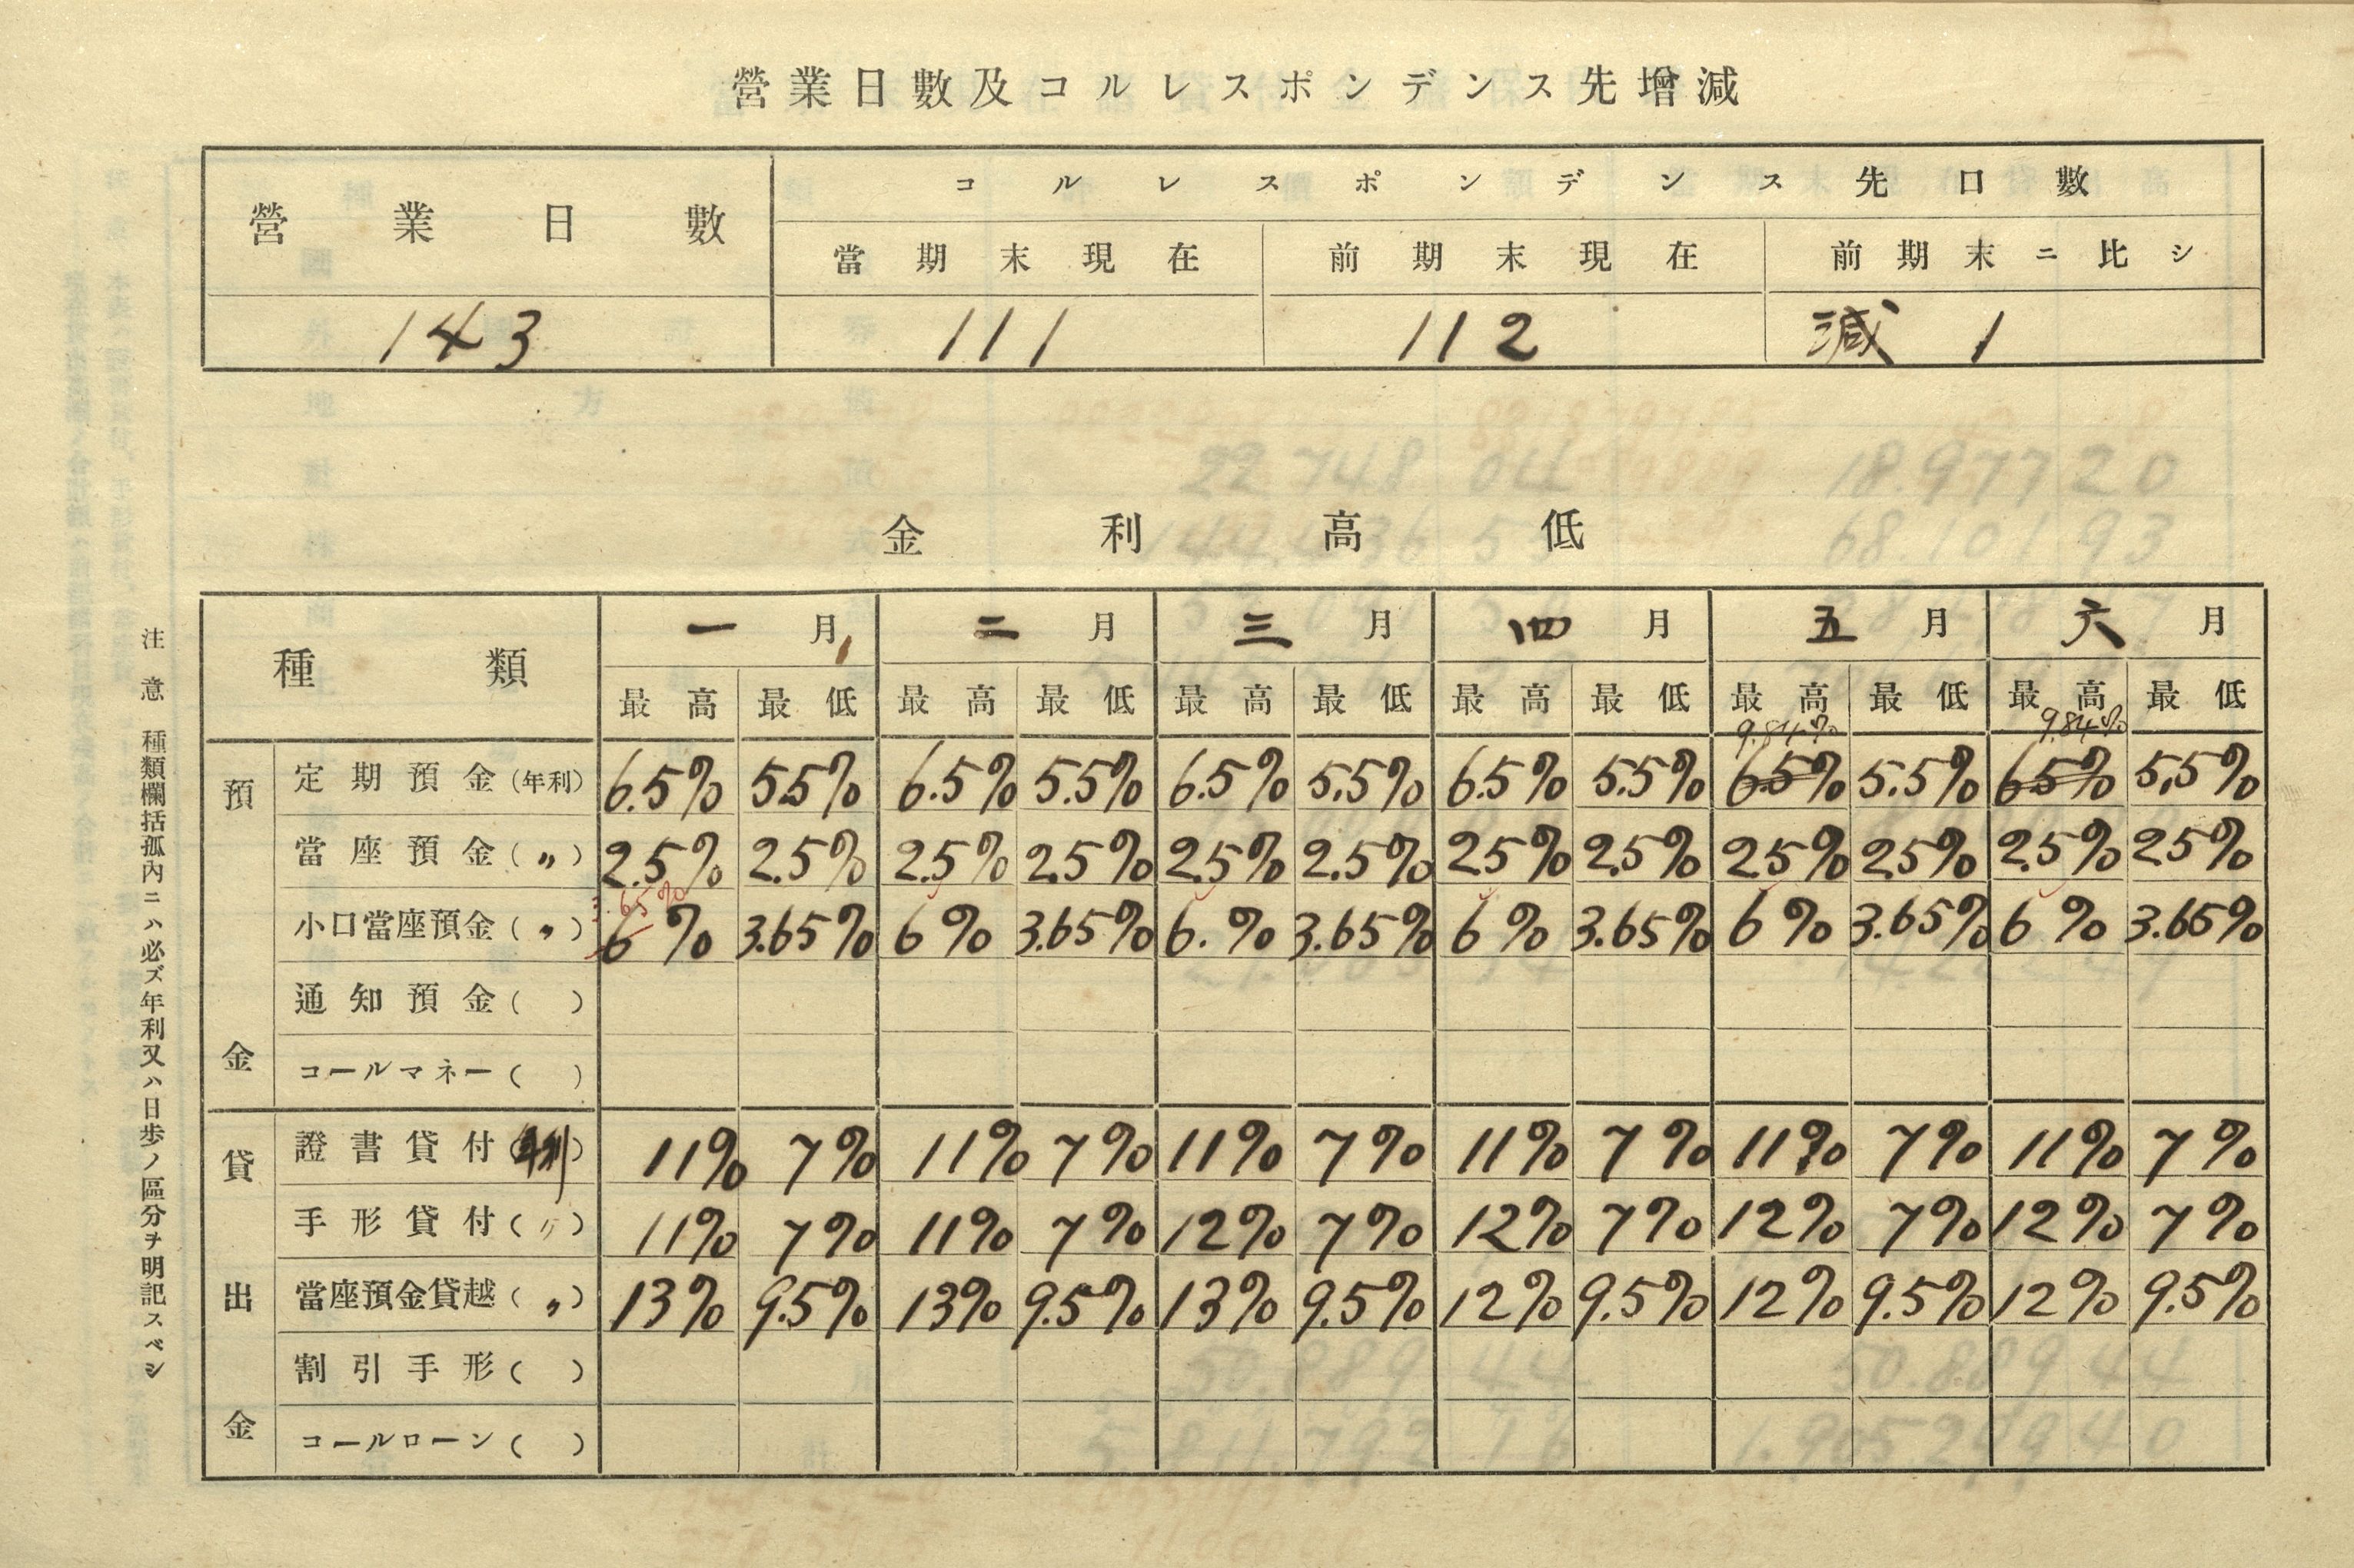 營業日數及コルレスポンデンス先增減
營業日數 コルレスポンデンス先口數
當期末現在 前期末現在 前期末ニ比シ
143 111 112 減 1
金利高低
種類 一月 二月 三月 四月 五月 六月
最高 最低 最高 最低 最高 最低 最高 最低 最高 最低 最高 最低
9.84% 9.84%
預金
定期預金(年利) 6.5% 5.5% 6.5% 5.5% 6.5% 5.5% 6.5% 5.5% 6.5% 5.5% 6.5% 5.5%
當座預金(〃) 2.5% 2.5% 2.5% 2.5% 2.5% 2.5% 2.5% 2.5% 2.5% 2.5% 2.5% 2.5%
3.65%
小口當座預金(〃) 6% 3.65% 6% 3.65% 6.% 3.65% 6% 3.65% 6% 3.65% 6% 3.65%
通知預金( )
コールマネー( )
貸出金
證書貸付(年利) 11% 7% 11% 7% 11% 7% 11% 7% 11% 7% 11% 7%
手形貸付(〃) 11% 7% 11% 7% 12% 7% 12% 7% 12% 7% 12% 7%
當座預金貸越(〃) 13% 9.5% 13% 9.5% 13% 9.5% 12% 9.5% 12% 9.5% 12% 9.5%
割引手形( )
コールローン( )
注意 種類欄括孤內ニハ必ズ年利又ハ日步ノ區分ヲ明記スベシ